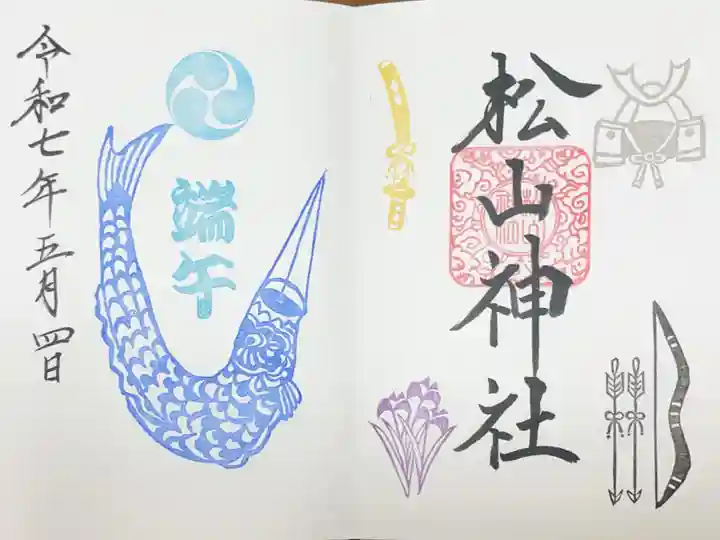 松山神社
端午
令和七年五月四日